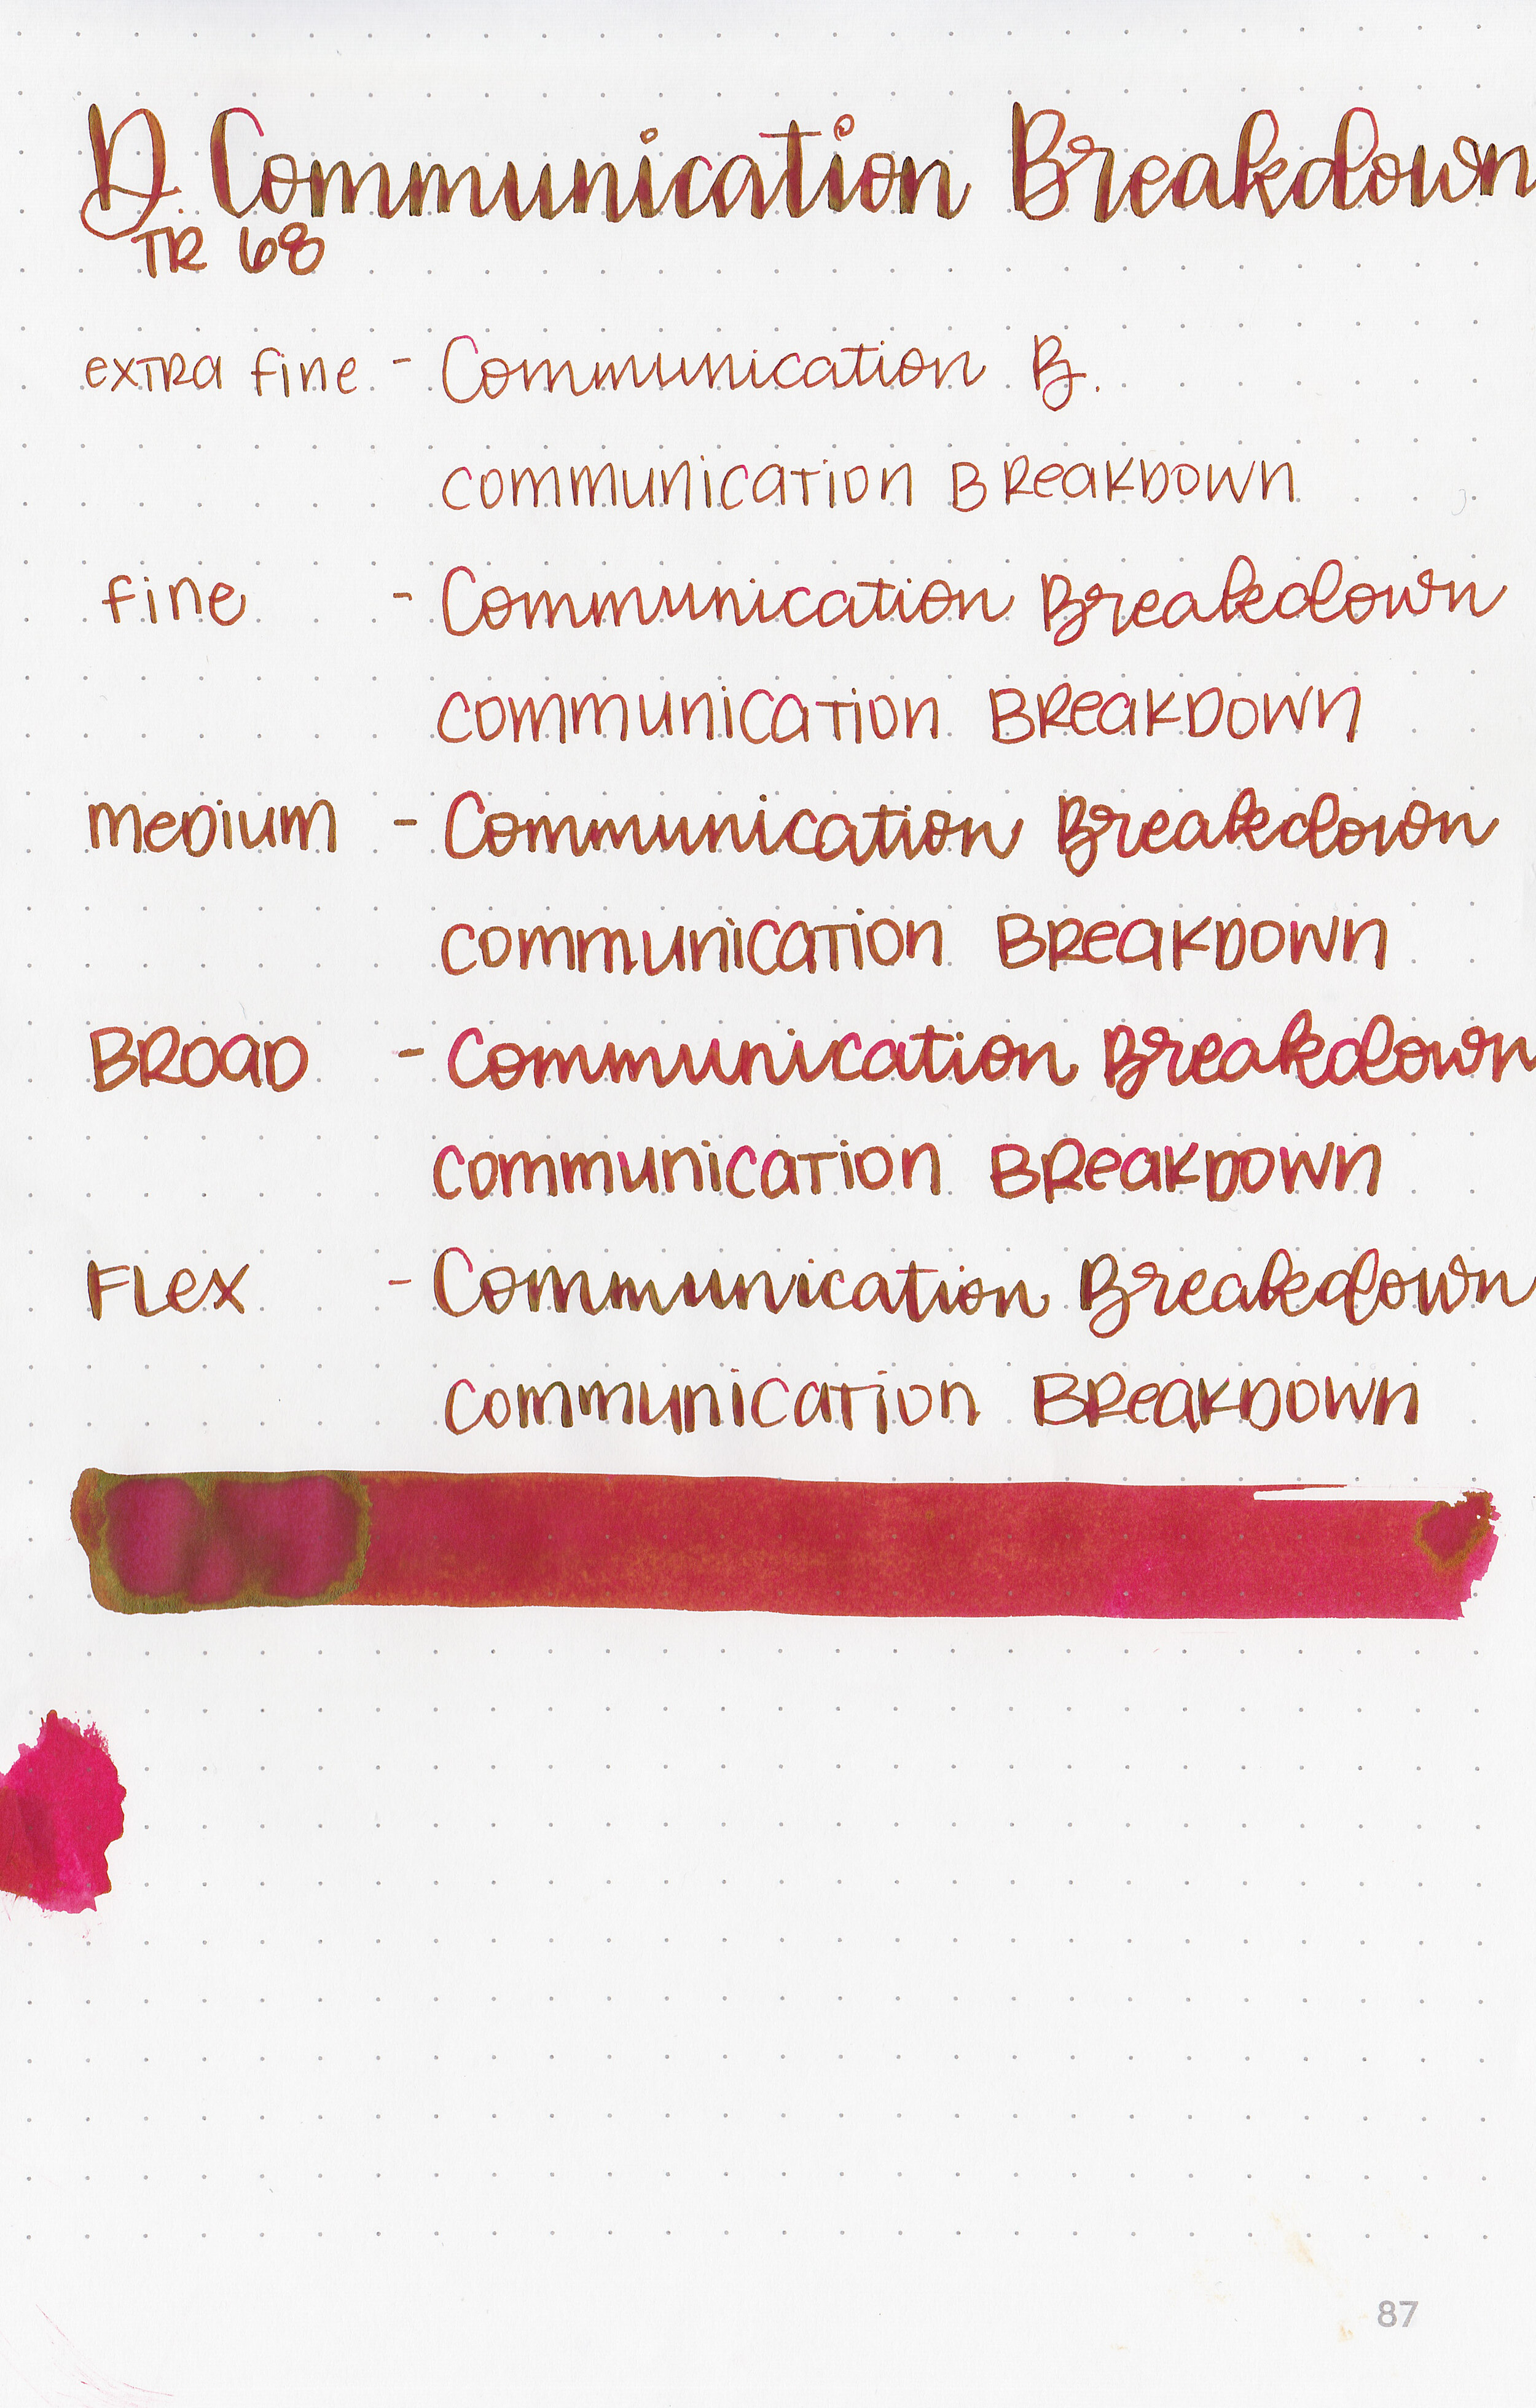 D. Communication Breakdown
TR 68
extra fine - Communication B.
communication Breakdown
fine - Communication Breakdown
communication Breakdown
medium - Communication Breakdown
communication Breakdown
Broad - Communication Breakdown
communication Breakdown
Flex - Communication Breakdown
communication Breakdown
87